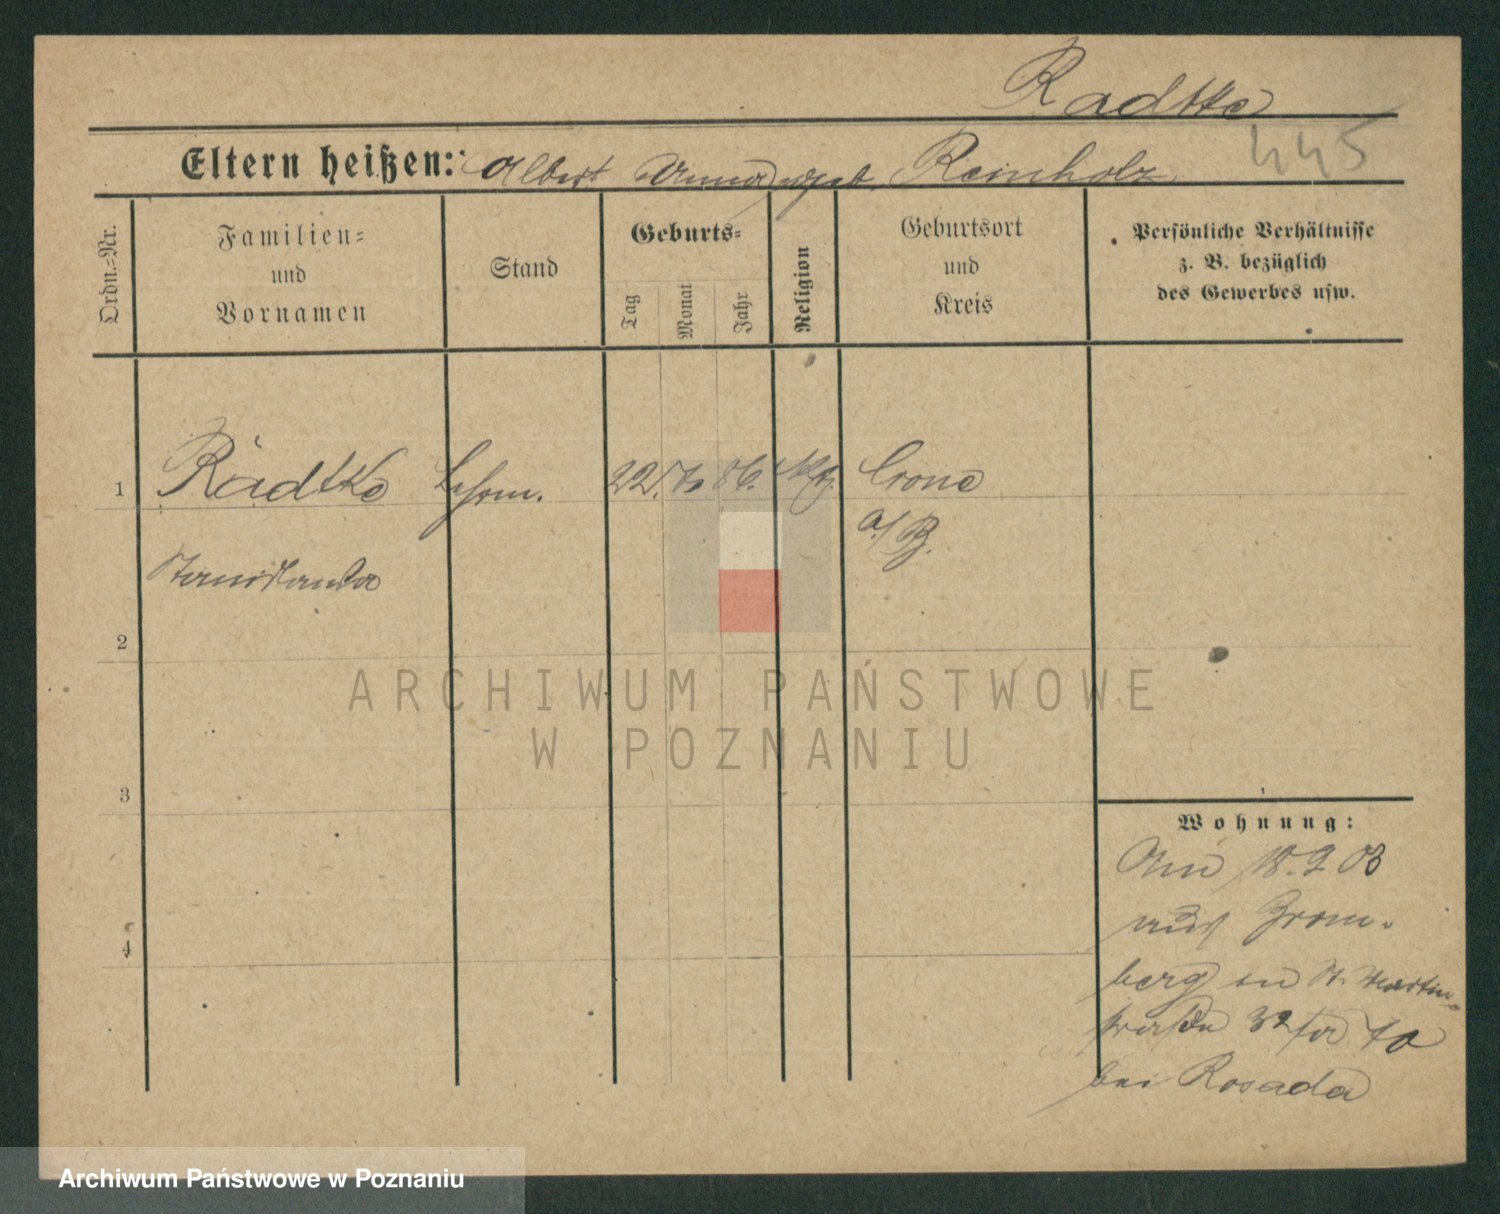 Radtke
445
Eltern heißen: Albert Anna geb. Reinholz
Ordn.-Nr.
Familien-
und
Vornamen
Stand
Geburts-
Tag
Monat
Jahr
Religion
Geburtsort
und
Kreis
Persönliche Verhältnisse
z. B. bezüglich
des Gewerbes usw.
1
Radtke
22. 7. 86.
Crone
a/B.
Stanislawa
2
3
4
Wohnung:
Am 18.9 03
aus Brom-
berg in St. Martin-
straße 32
bei Rosada
ARCHIWUM PAŃSTWOWE
W POZNANIU
Archiwum Państwowe w Poznaniu